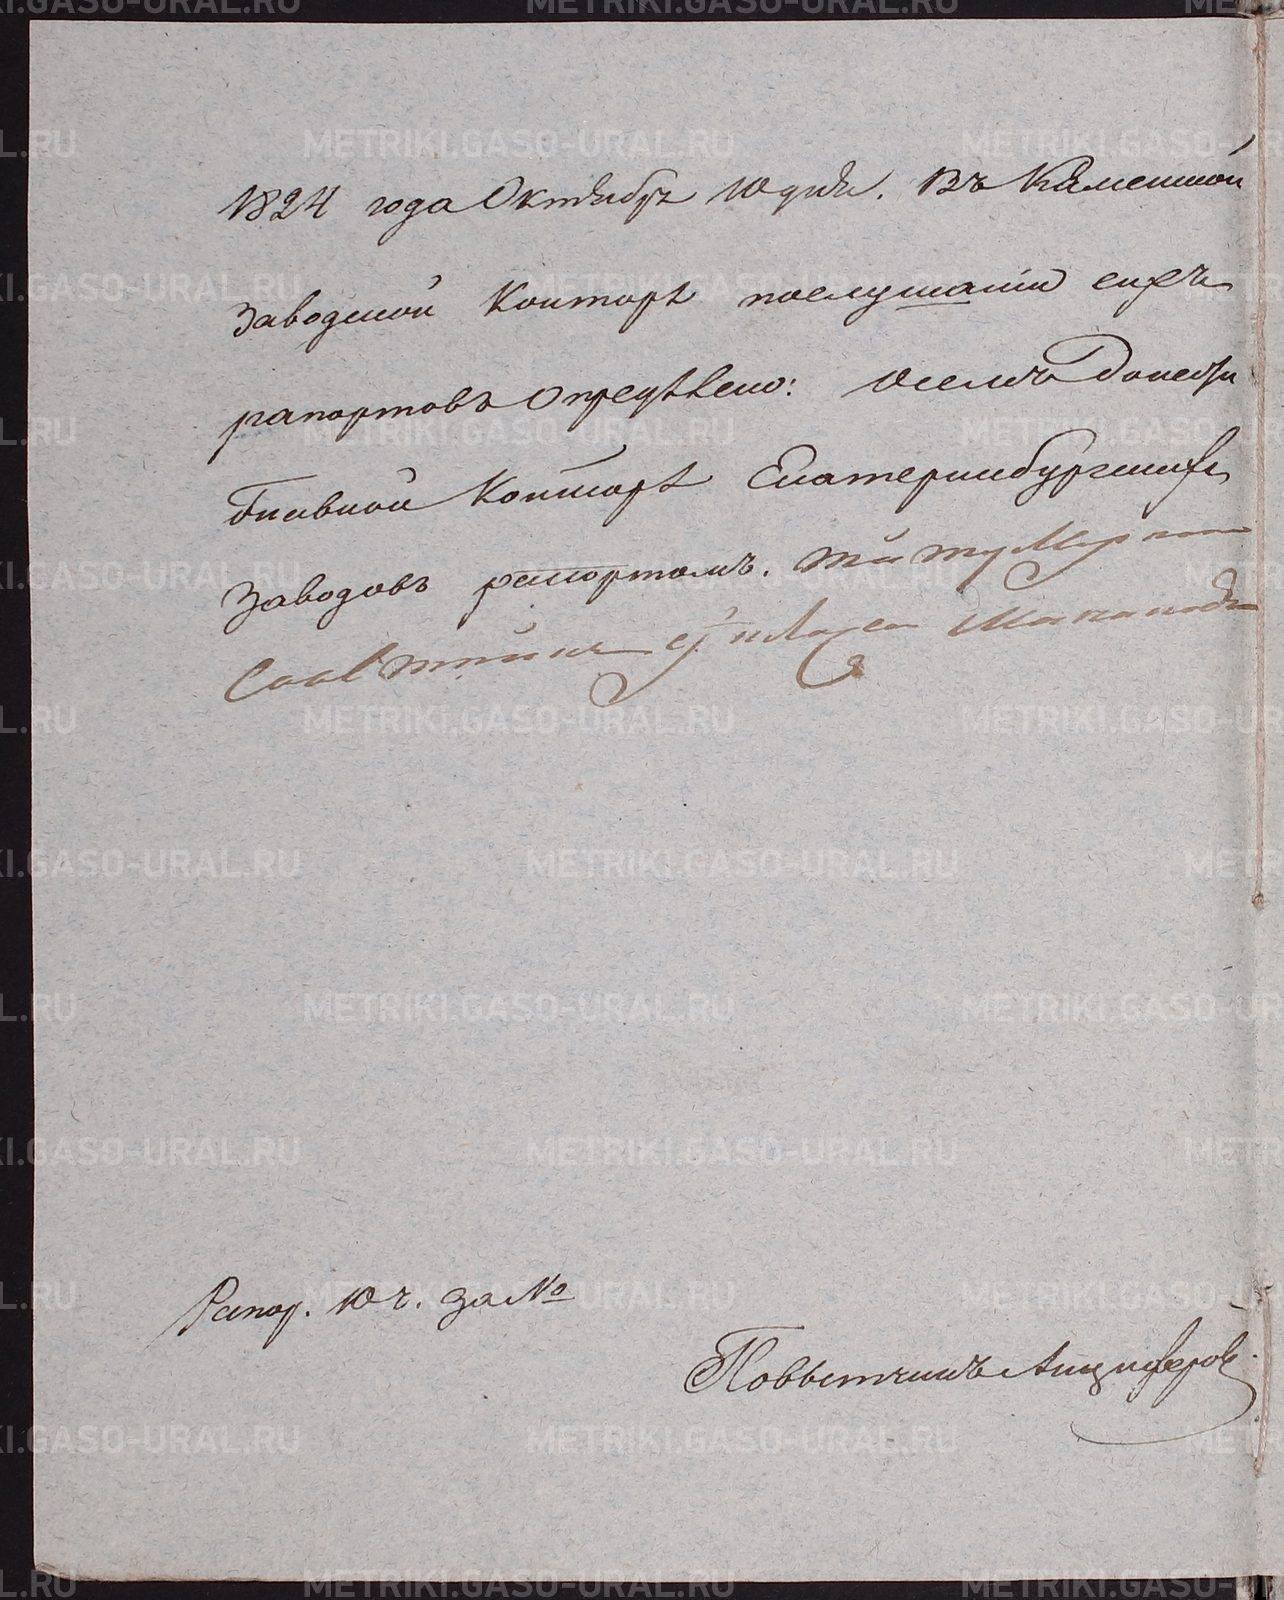 1824 года Октября 10 дня. Въ Каменской
Заводской Конторѣ послушаніи сихъ
рапортовъ Опредѣлено: О семъ Донести
Главной Конторѣ Екатеринбургскихъ
Заводовъ рапортомъ.
Рапор. 10 ч. за №
Повытчикъ Анцыферовъ